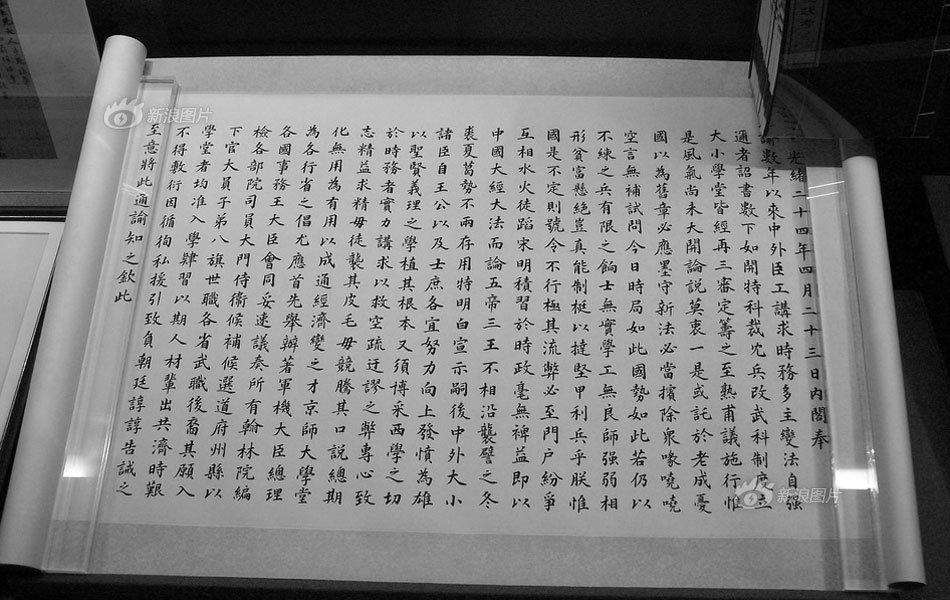 光緒二十四年四月二十三日內閣奉
諭數年以來中外臣工講求時務多主變法自強
通者詔書數下如開特科裁宂兵改武科制度立
大小學堂皆經再三審定籌之至熟甫議施行惟
是風氣尚未大開論說莫衷一是或託於老成憂
國以為舊章必應墨守新法必當擯除衆喙嘵嘵
空言無補試問今日時局如此國勢如此若仍以
不練之兵有限之餉士無實學工無良師強弱相
形貧富懸絕豈真能制梃以撻堅甲利兵乎朕惟
國是不定則號令不行極其流弊必至門户紛爭
互相水火徒蹈宋明積習於時政毫無裨益即以
中國大經大法而論五帝三王不相沿襲譬之冬
裘夏葛勢不兩存用特明白宣示嗣後中外大小
諸臣自王公以及士庶各宜努力向上發憤為雄
以聖賢義理之學植其根本又須博采西學之切
於時務者實力講求以救空疏迂謬之弊專心致
志精益求精毋徒襲其皮毛毋競騰其口說總期
化無用為有用以成通經濟變之才京師大學堂
為各行省之倡尤應首先舉辦著軍機大臣總理
各國事務王大臣會同妥速議奏所有翰林院編
檢各部院司員大門侍衛候補候選道府州縣以
下官大員子弟八旗世職各省武職後裔其願入
學堂者均准入學肄習以期人材輩出共濟時艱
不得敷衍因循徇私援引致負朝廷諄諄告誡之
至意將此通諭知之欽此
新浪图片
新浪图片